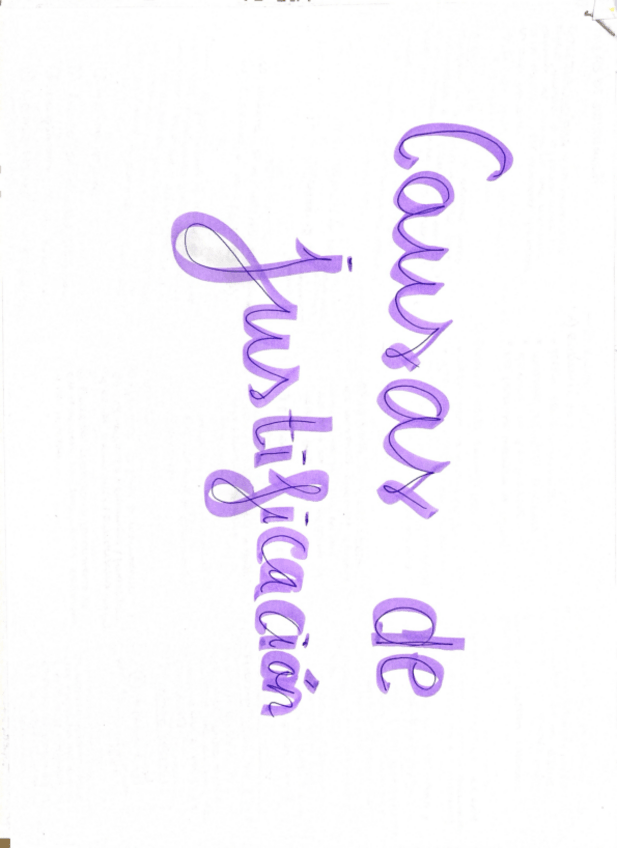 Causas de
justificación